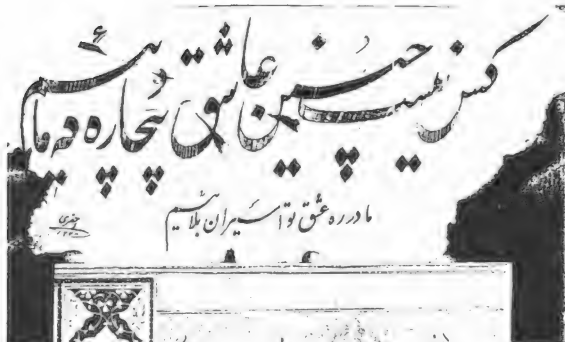 کس نیست چنین عاشق بیچاره که مائیم
ما در ره عشق تو اسیران بلائیم